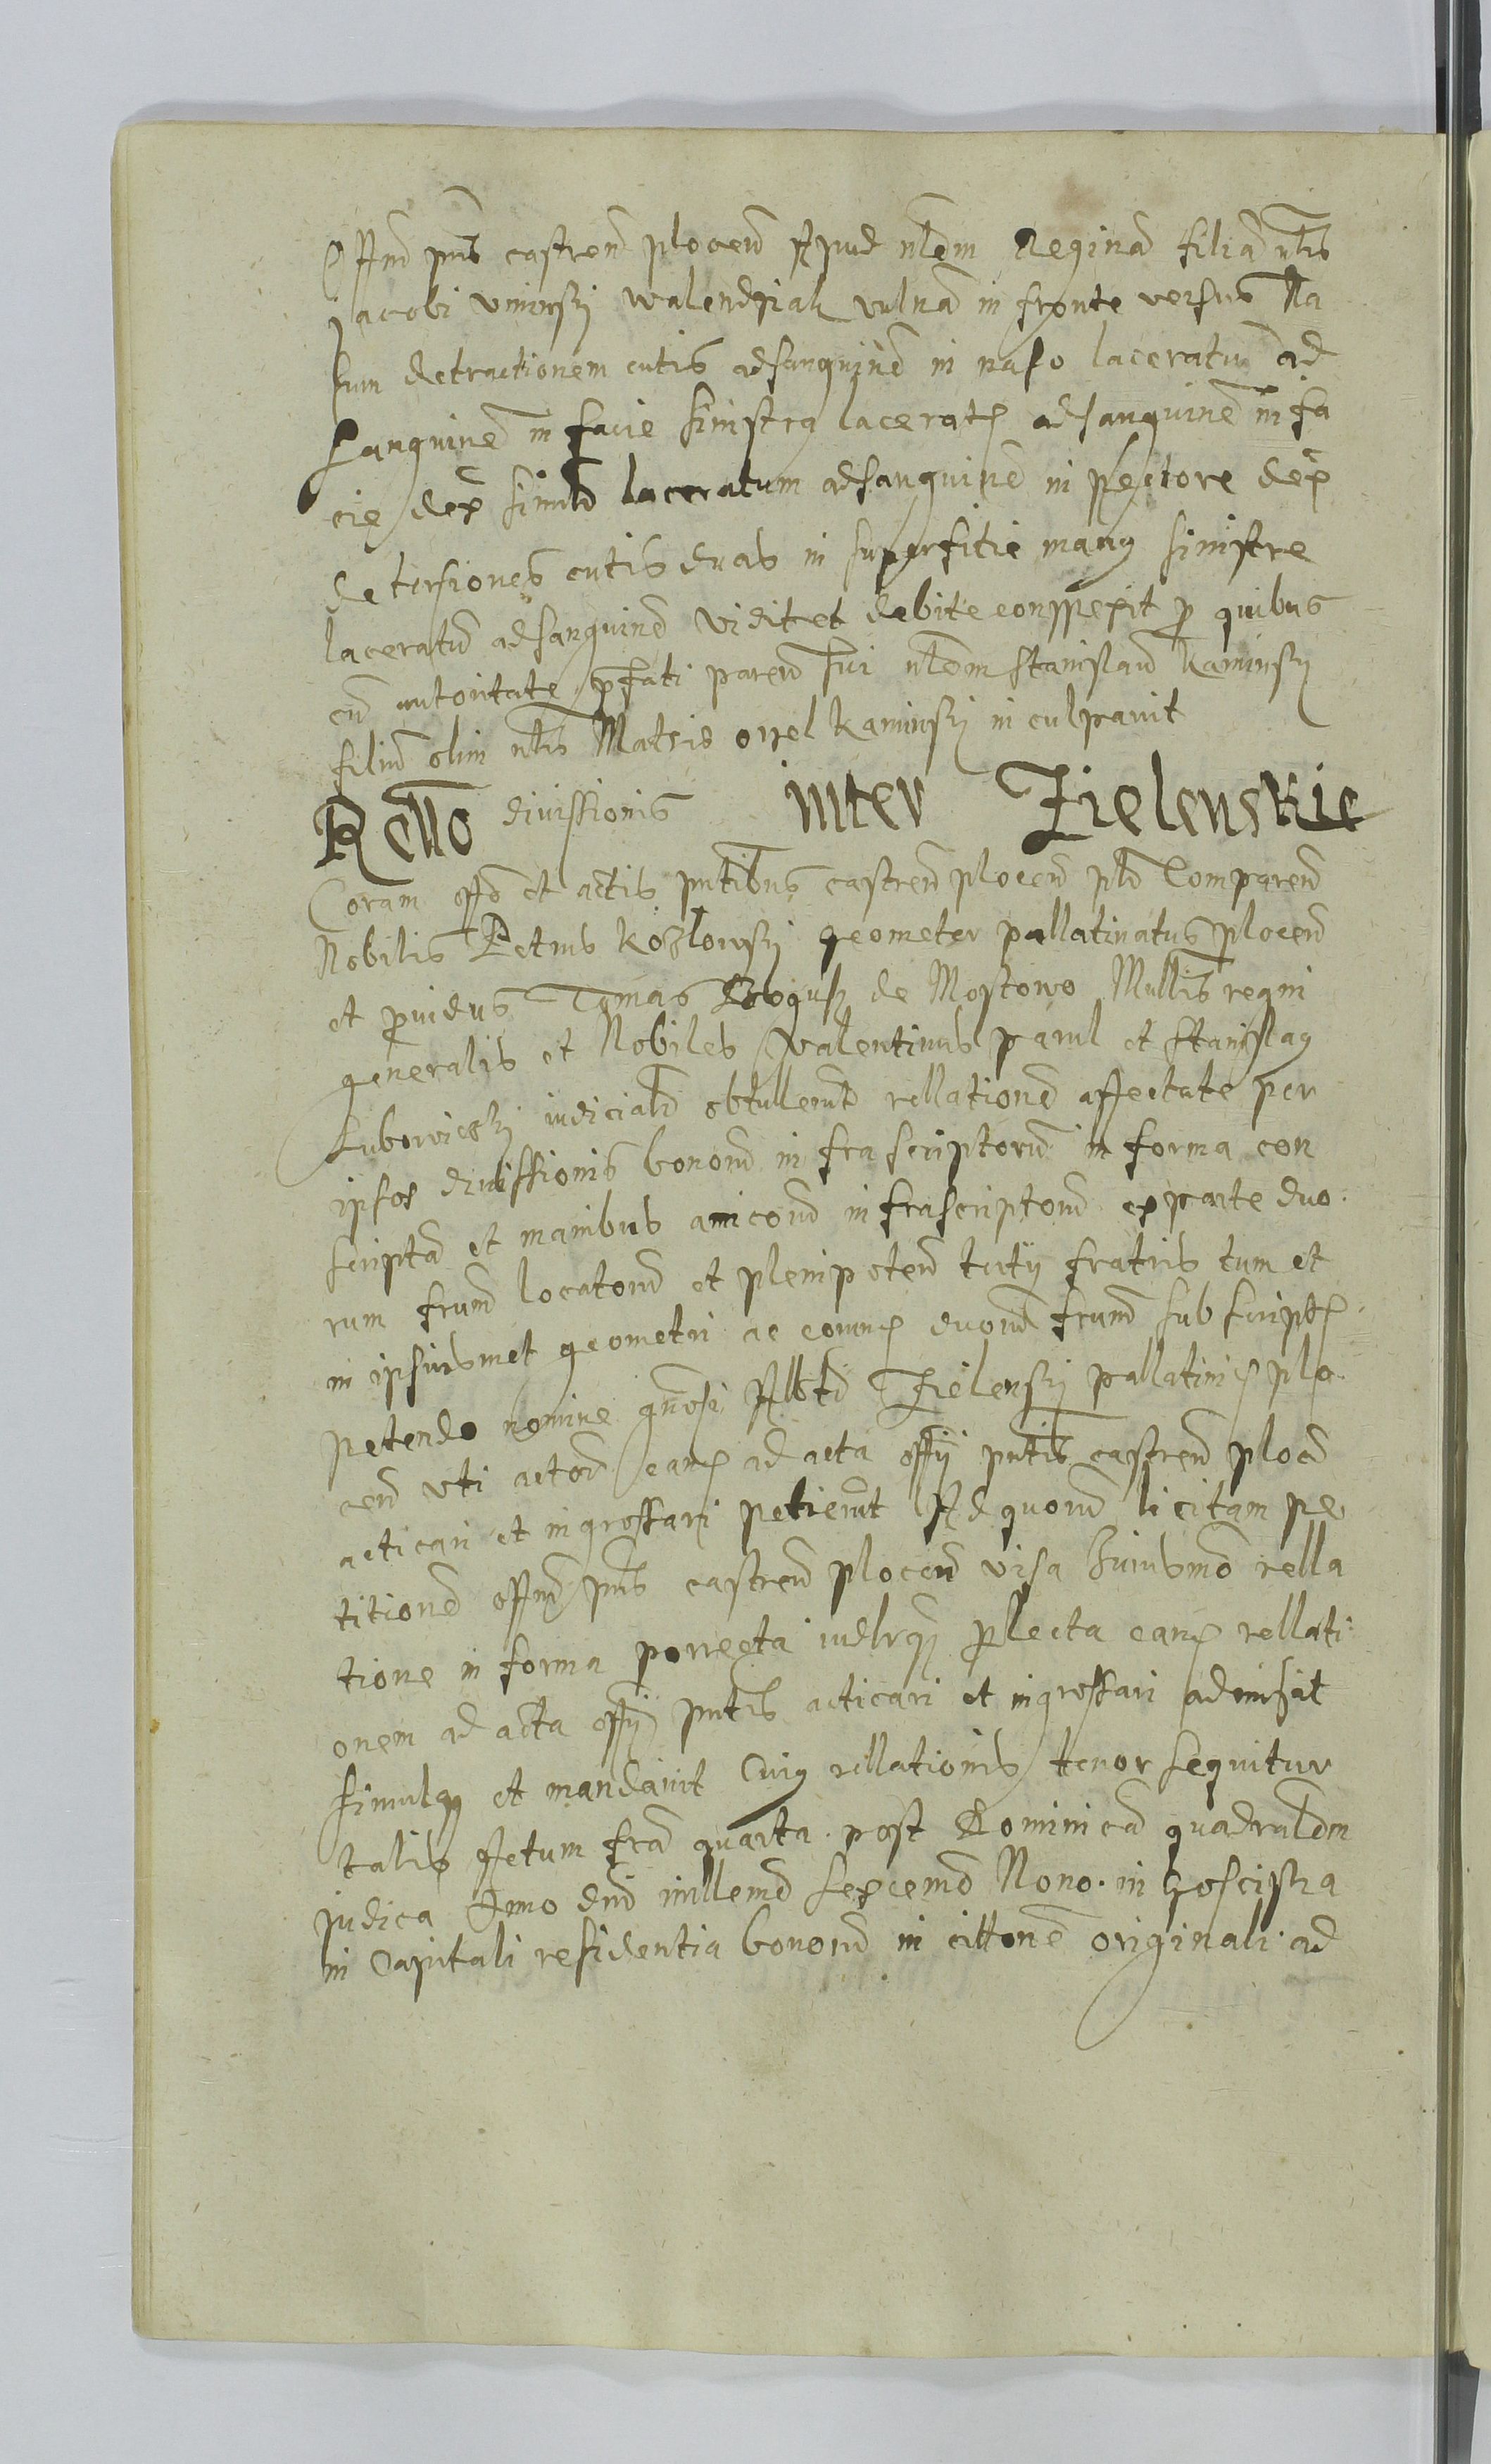 Offm pns castren plocen Apud nblem Reginam filiam nblis
Jacobi Uminsky walendziak vulnam in fronte versus Na
sum detractionem cutis ad sanguinem in naso laceratum ad
sanguinem in facie sinistra laceratum ad sanguinem in fa
cie dex simul laceratum ad sanguinem in pectore dex
detersiones cutis duas in superfitie manus sinistre
laceratum ad sanguinem vidit et debite conspexit pro quibus
cum autoritate pfati paren sui nblem Stanislaum Kaminsky
filium olim nblis Mathie orel Kaminsky in culpavit
Rello divissionis inter Zielenskie
Coram offo et actis pntibus castren plocen pld Comparen
Nobilis Petrus Kozlowsky geometer pallatinatus plocen
et pvidus Tomas Bogusz de Mostowo Mllis regni
generalis et Nobiles Walentinus pawl et Stanislaus
Luboviesky iudiciald obtullerunt rellationem affectate per
ipsos divissionis bonorum in fra scriptorum in forma con
scriptam et manibus amicorum in frascriptorum ex parte duo
rum frum locatorum et plenipoten tertii fratris tum et
in ipsiusmet geometri ac eorum duorum frum sub script
petendo nomine gnosi Alberti Zielensky pallatinis plo
cen uti actorum eam ad acta offii pntis castren plocen
acticari et ingrossari petierunt Ad quorum licitam pe
titionem offm pns castren plocen visa huiusmo rella
tione in forma porrecta iudlrq plecta eam rellati
onem ad acta offii pntis acticari et ingrossari admisit
simulq et mandavit Cuius rellationis tenor sequitur
talis Actum fra quarta post Dominicam quadrulem
judica Anno dni millemo sexcemo Nono in Goscisza
in Capitali residentia bonorum in cittone originali ad